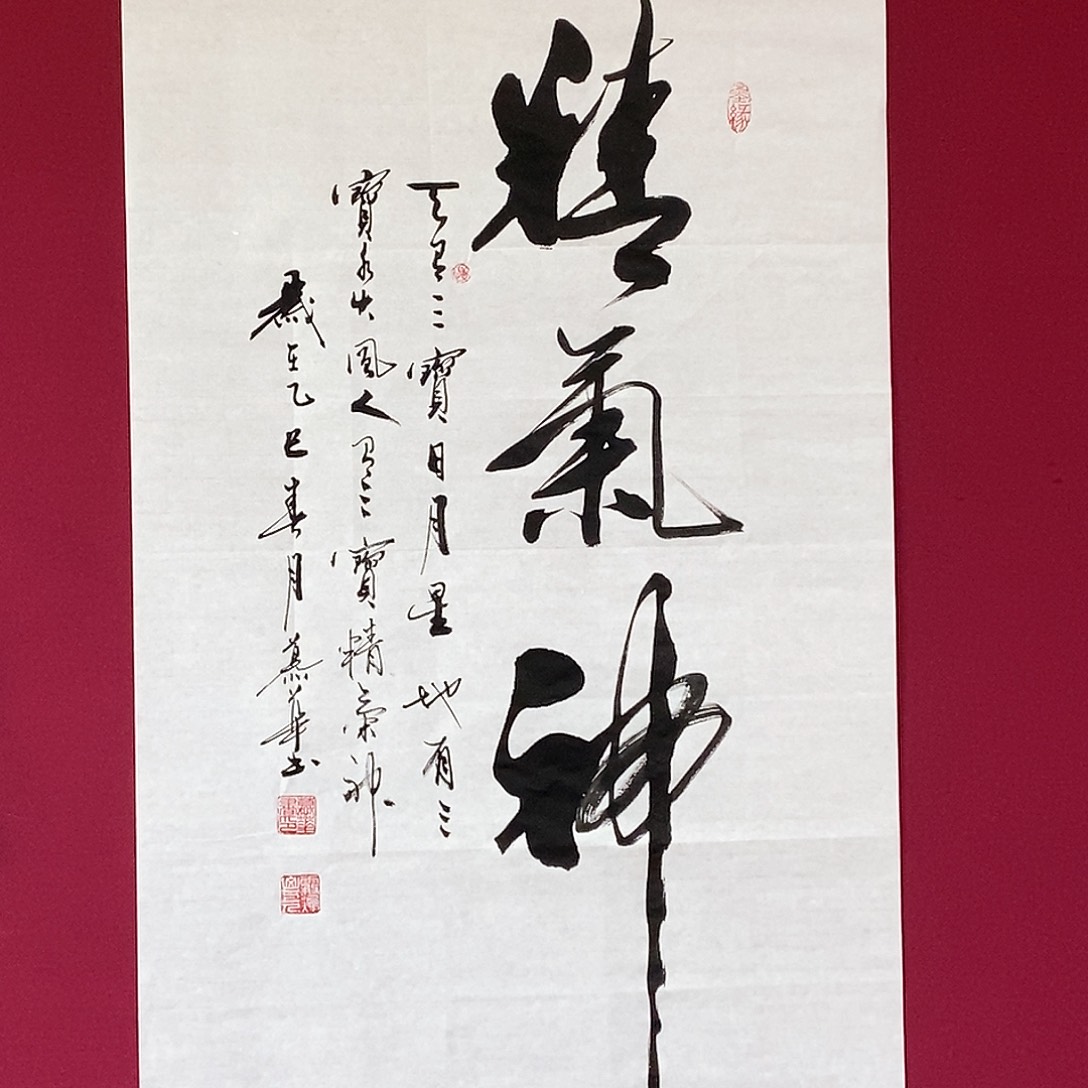 精氣神
天有三寶日月星地有三
寶水火風人有三寶精氣神
歲在乙巳春月慕華書
墨緣